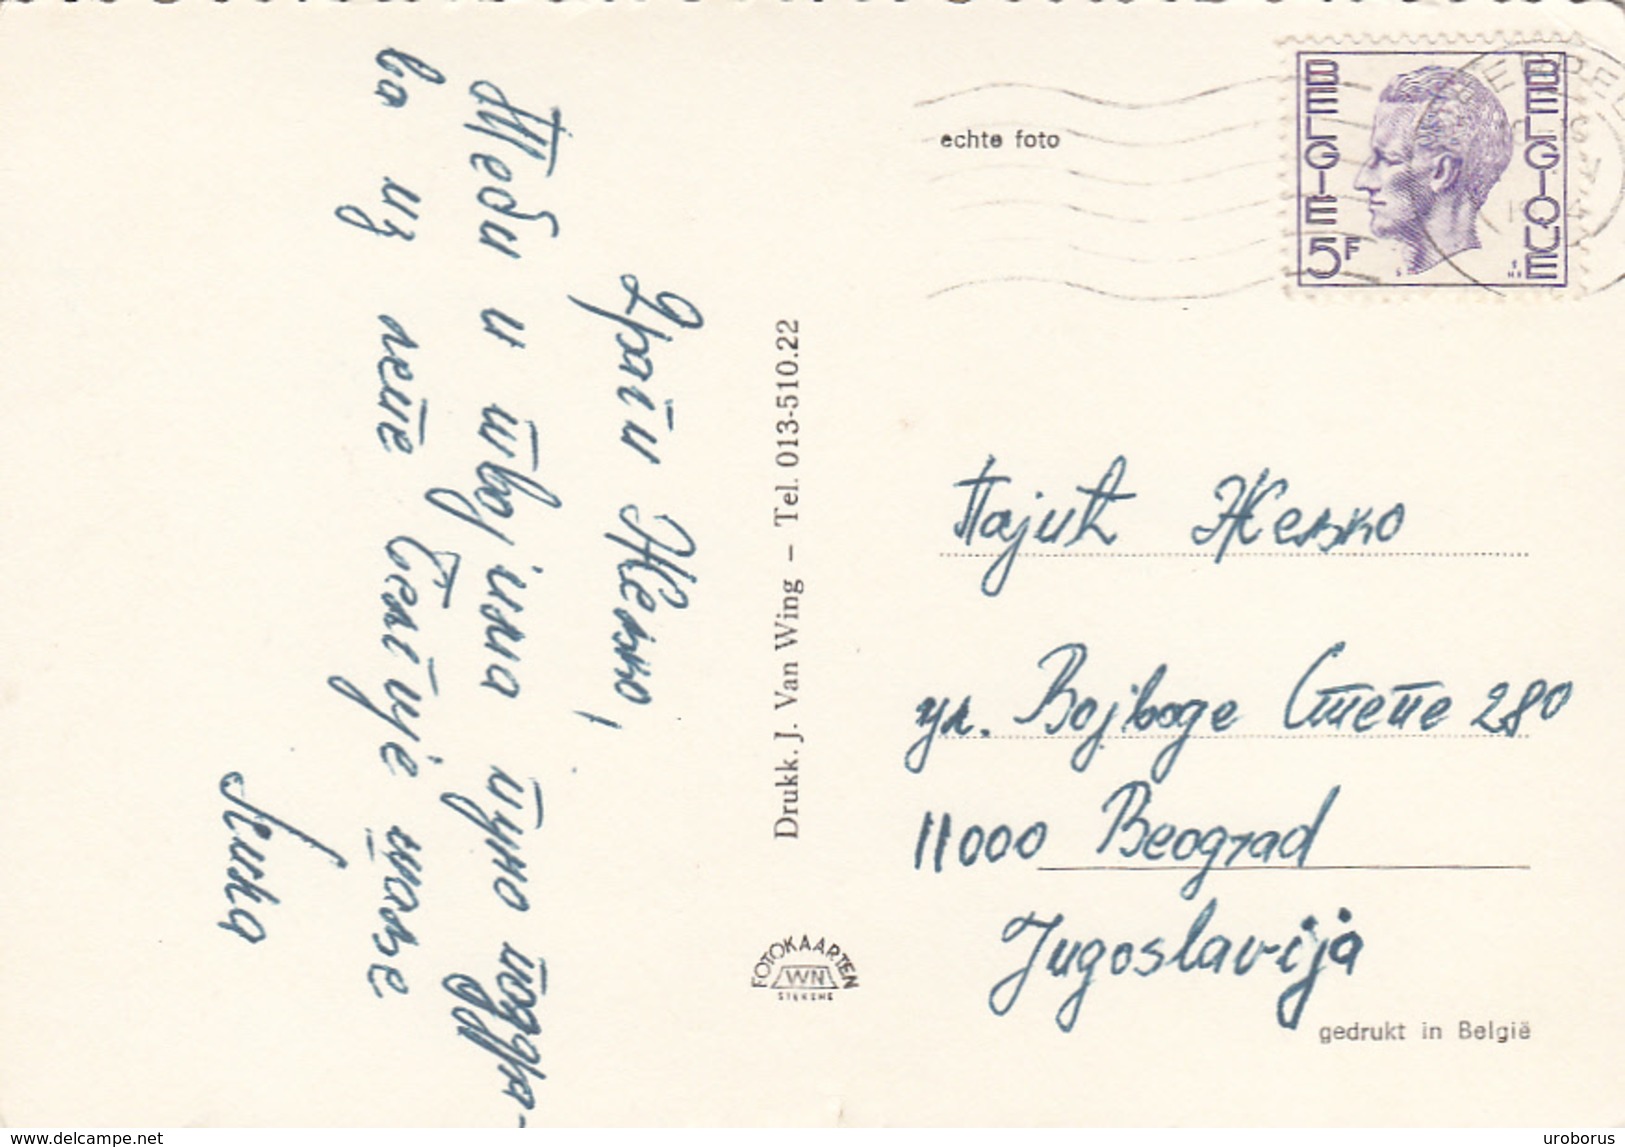 Драги Жељко,
Теби и твојима пуно поздра-
ва из лепе Белгије шаље
echte foto
BELGIE
BELGIQUE
5F
Drukk. J. Van Wing – Tel. 013-510.22
FOTOKAARTEN
WN
STEKENE
Пајић Жељко
ул. Војводе Степе 280
11000 Beograd
Jugoslavija
gedrukt in België
www.delcampe.net
uroborus